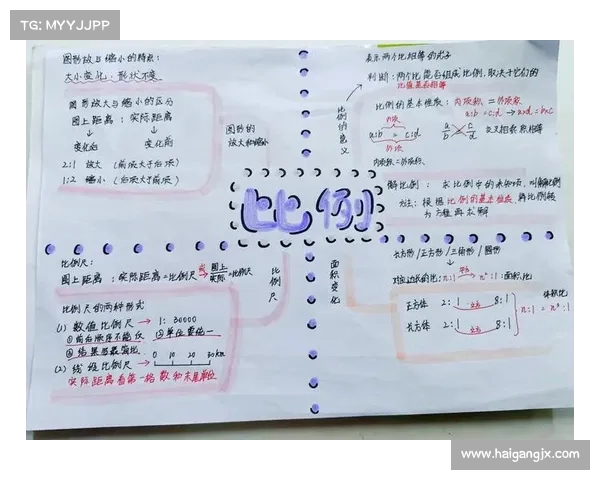 TG: MYYJJPP
图形放与缩小的特点:
大小变化,形状不变
图形放大与缩小的区分
图上距离:实际距离
变化后 变化前
2:1 放大 (前项大于后项)
1:2 缩小 (后项大于前项)
图形的
放大和缩小
表示两个比相等的式子
判断:两个比能否组成比例,取决于它们的
比值是否相等
比例的基本性质:内项积=外项积
a:b=c:d→axd=bxc
内项
a:b = c:d
外项
内项积=外项积
a/b c/d 交叉相乘积相等
比例的意义
解比例: 求比例中的未知项,叫解比例
方法:根据比例的基本性质,将比例转
为方程再求解
比例
比例尺:
图上距离:实际距离=比例尺 或 图上/实际=比例尺
比例尺
比例尺的两种形式
(1) 数值比例尺→1:30000
①前后顺序不能反 ②单位要统一
③结果写最简比
(2) 线段比例尺→ 0 10 20 30km
实际距离看第一格数和末尾单位
面积变化
长方形/正方形/三角形/圆形
对应边长的比:n:1 平方→ n²:1:面积比
正方体 2:1 立方 8:1
长方体 2:1 立方 8:1
体积比
n:1=n³:1
www.haigangjx.com